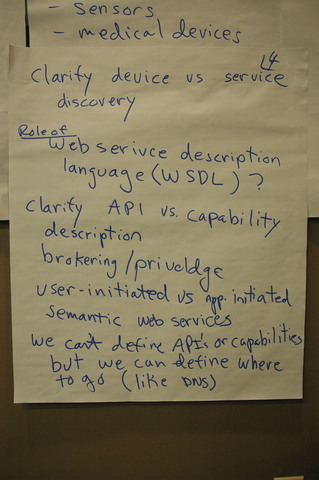 - sensors
- medical devices
L4
Clarify device vs service
discovery
Role of
Web serivce description
language (WSDL) ?
Clarify API vs. capability
description
brokering/priveldge
user-initiated vs app. initiated
semantic web services
we can't define API's or capabilities
but we can define where
to go (like DNS)